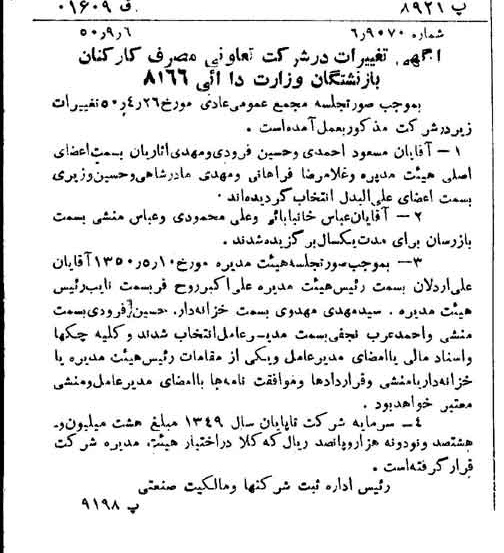 پ ۸۹۲۱
ق ۰۱۶۰۹
شماره ۶٫۹۰۷۰
۵۰٫۹٫۶
آگهی تغییرات در شرکت تعاونی مصرف کارکنان
بازنشتگان وزارت دا ائی ۸۱۶۶
بموجب صورتجلسه مجمع عمومی عادی مورخ ۵۰٫۴٫۲۶ تغییرات
زیر در شرکت مذکور بعمل آمده است .
۱ — آقایان مسعود احمدی و حسین فرودی و مهدی اثاریان بسمت اعضای
اصلی هیئت مدیره و غلامرضا فراهانی و مهدی مادرشاهی و حسین وزیری
بسمت اعضای علی البدل انتخاب گردیده‌اند .
۲ — آقایان عباس خانبابائی و علی محمودی و عباس منشی بسمت
بازرسان برای مدت یکسال برگزیده شدند .
۳ — بموجب صورتجلسه هیئت مدیره مورخ ۱۳۵۰٫۵٫۱۰ آقایان
علی اردلان بسمت رئیس هیئت مدیره علی اکبر روح فر بسمت نایب رئیس
هیئت مدیره . سید مهدی مهدوی بسمت خزانه دار. حسین فرودی بسمت
منشی و احمد عرب نجفی بسمت مدیر عامل انتخاب شدند و کلیه چکها
و اسناد مالی با امضای مدیر عامل و یکی از مقامات رئیس هیئت مدیره یا
خزانه دار یا منشی و قراردادها و موافقت نامه‌ها با امضای مدیر عامل و منشی
معتبر خواهد بود .
۴ — سرمایه شرکت تا پایان سال ۱۳۴۹ مبلغ هشت میلیون و
هشتصد و نود و نه هزار و پانصد ریال که کلا در اختیار هیئت مدیره شرکت
قرار گرفته است .
رئیس اداره ثبت شرکتها و مالکیت صنعتی
پ ۹۱۹۸